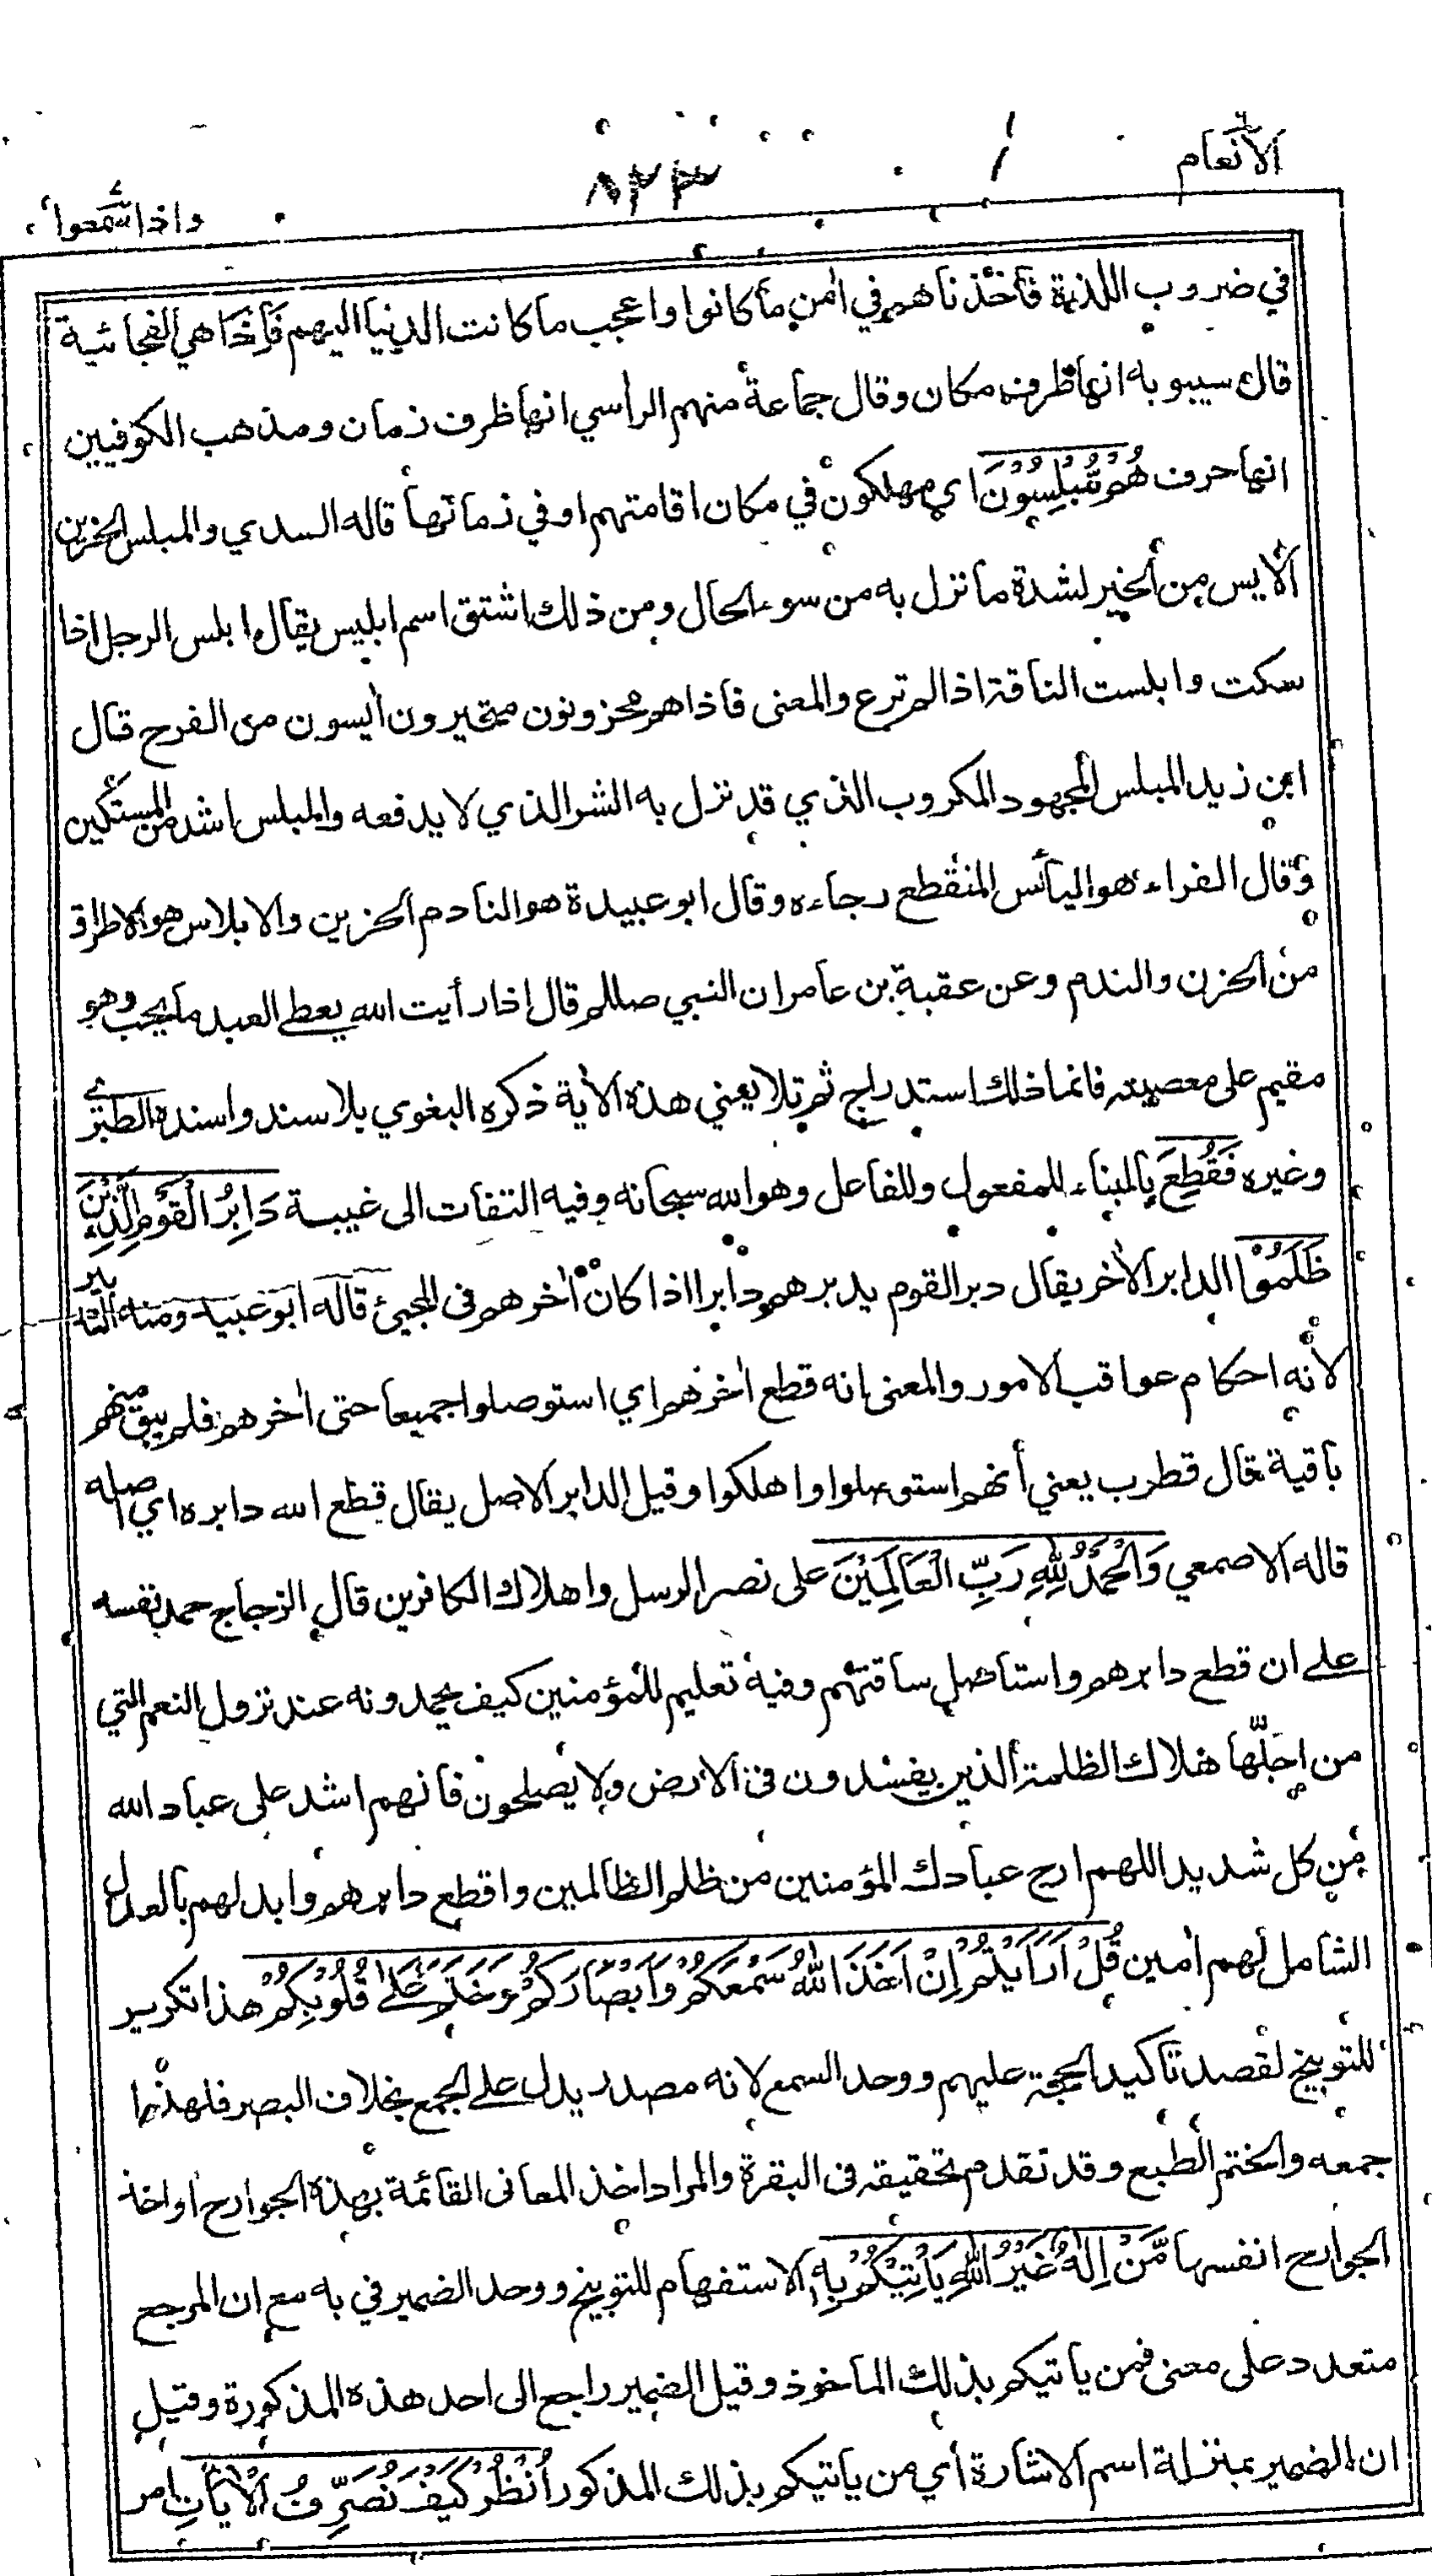 الأنعام
٨٢٣
واذا سمعوا
في ضروب اللذة فأخذناهم في اٰمن ما كانوا واعجب ما كانت الدنيا اليهم فَإِذَا هي الفجائية
قال سيبويه انها ظرف مكان وقال جماعة منهم الرأسي انها ظرف زمان ومذهب الكوفيين
انها حرف هُمْ مُّبْلِسُوْنَ اي مهلكون في مكان اقامتهم او في زمانها قاله السدي والمبلس الحزين
الأيس من الخير لشدة ما نزل به من سوء الحال ومن ذلك اشتق اسم ابليس يقال ابلس الرجل اذا
سكت وابلست الناقة اذا لم ترع والمعنى فاذا هم محزونون متحيرون أيسون من الفرح قال
ابن زيد المبلس المجهود المكروب الذي قد نزل به الشر الذي لا يدفعه والمبلس اشد من المستكين
وقال الفراء هو اليأس المنقطع رجاءه وقال ابو عبيدة هو النادم الحزين والابلاس هو الاطراق
من الحزن والندم وعن عقبة بن عامر ان النبي صللم قال اذا رأيت الله يعطي العبد ما يحب وهو
مقيم على معصيته فانما ذلك استدراج ثم تلا يعني هذه الأية ذكره البغوي بلا سند واسنده الطبري
وغيره فَقُطِعَ بالبناء للمفعول وللفاعل وهو الله سبحانه وفيه التفات الى غيبة دَابِرُ الْقَوْمِ الَّذِيْنَ
ظَلَمُوْا الدابر الأخر يقال دبر القوم يدبرهم دابرا اذا كان اٰخرهم في المجيئ قاله ابو عبيد ومنه التدبير
لأنه احكام عواقب الامور والمعنى انه قطع اٰخرهم اي استوصلوا جميعا حتى اٰخرهم فلم يبق منهم
باقية قال قطرب يعني أنهم استوصلوا واهلكوا وقيل الدابر الاصل يقال قطع الله دابره اي اصله
قاله الاصمعي وَالْحَمْدُ لِلّٰهِ رَبِّ الْعَالَمِيْنَ على نصر الرسل واهلاك الكافرين قال الزجاج حمد نفسه
على ان قطع دابرهم واستاصل ساقتهم وفيه تعليم للمؤمنين كيف يحمدونه عند نزول النعم التي
من اجلّها هلاك الظلمة الذين يفسدون في الارض ولا يصلحون فانهم اشد على عباد الله
من كل شديد اللهم ارح عبادك المؤمنين من ظلم الظالمين واقطع دابرهم وابدلهم بالعدل
الشامل لهم اٰمين قُلْ اَرَاَيْتُمْ اِنْ اَخَذَ اللّٰهُ سَمْعَكُمْ وَاَبْصَارَكُمْ وَخَتَمَ عَلٰى قُلُوْبِكُمْ هذا تكرير
للتوبيخ لقصد تأكيد الحجة عليهم ووحد السمع لانه مصدر يدل على الجمع بخلاف البصر فلهذا
جمعه والختم الطبع وقد تقدم تحقيقه في البقرة والمراد اخذ المعاني القائمة بهذه الجوارح او اخذ
الجوارح انفسها مَّنْ اِلٰهٌ غَيْرُ اللّٰهِ يَاْتِيْكُمْ بِهٖ الاستفهام للتوبيخ ووحد الضمير في به مع ان المرجع
متعدد على معنى فمن ياتيكم بذلك الماخوذ وقيل الضمير راجع الى احد هذه المذكورة وقيل
ان الضمير بمنزلة اسم الاشارة أي من ياتيكم بذلك المذكور اُنْظُرْ كَيْفَ نُصَرِّفُ الْاٰيَاتِ امر